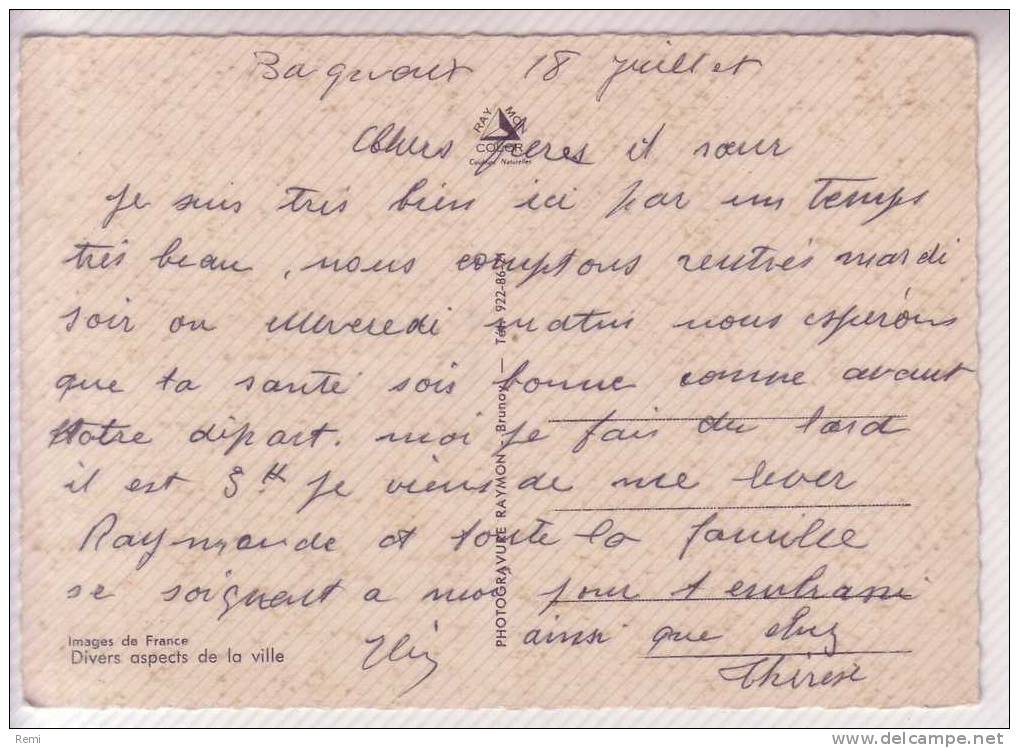 Bagneux 18 juillet
RAYMON
COLOR
Couleurs Naturelles
Chers frères et sœur
je suis très bien ici par un temps
très beau, nous comptons rentrés mardi
soir ou Mercredi matin nous espérons
que ta santé sois bonne comme avant
Notre départ. moi je fais du lard
il est 9h je viens de me lever
Raymonde et toute la famille
se joignent a moi pour t'embrassé
ainsi que chez
Thérèse
PHOTOGRAVURE RAYMON - Brunoy — Tél. 922-86-21
Images de France
Divers aspects de la ville
Remi
www.delcampe.net